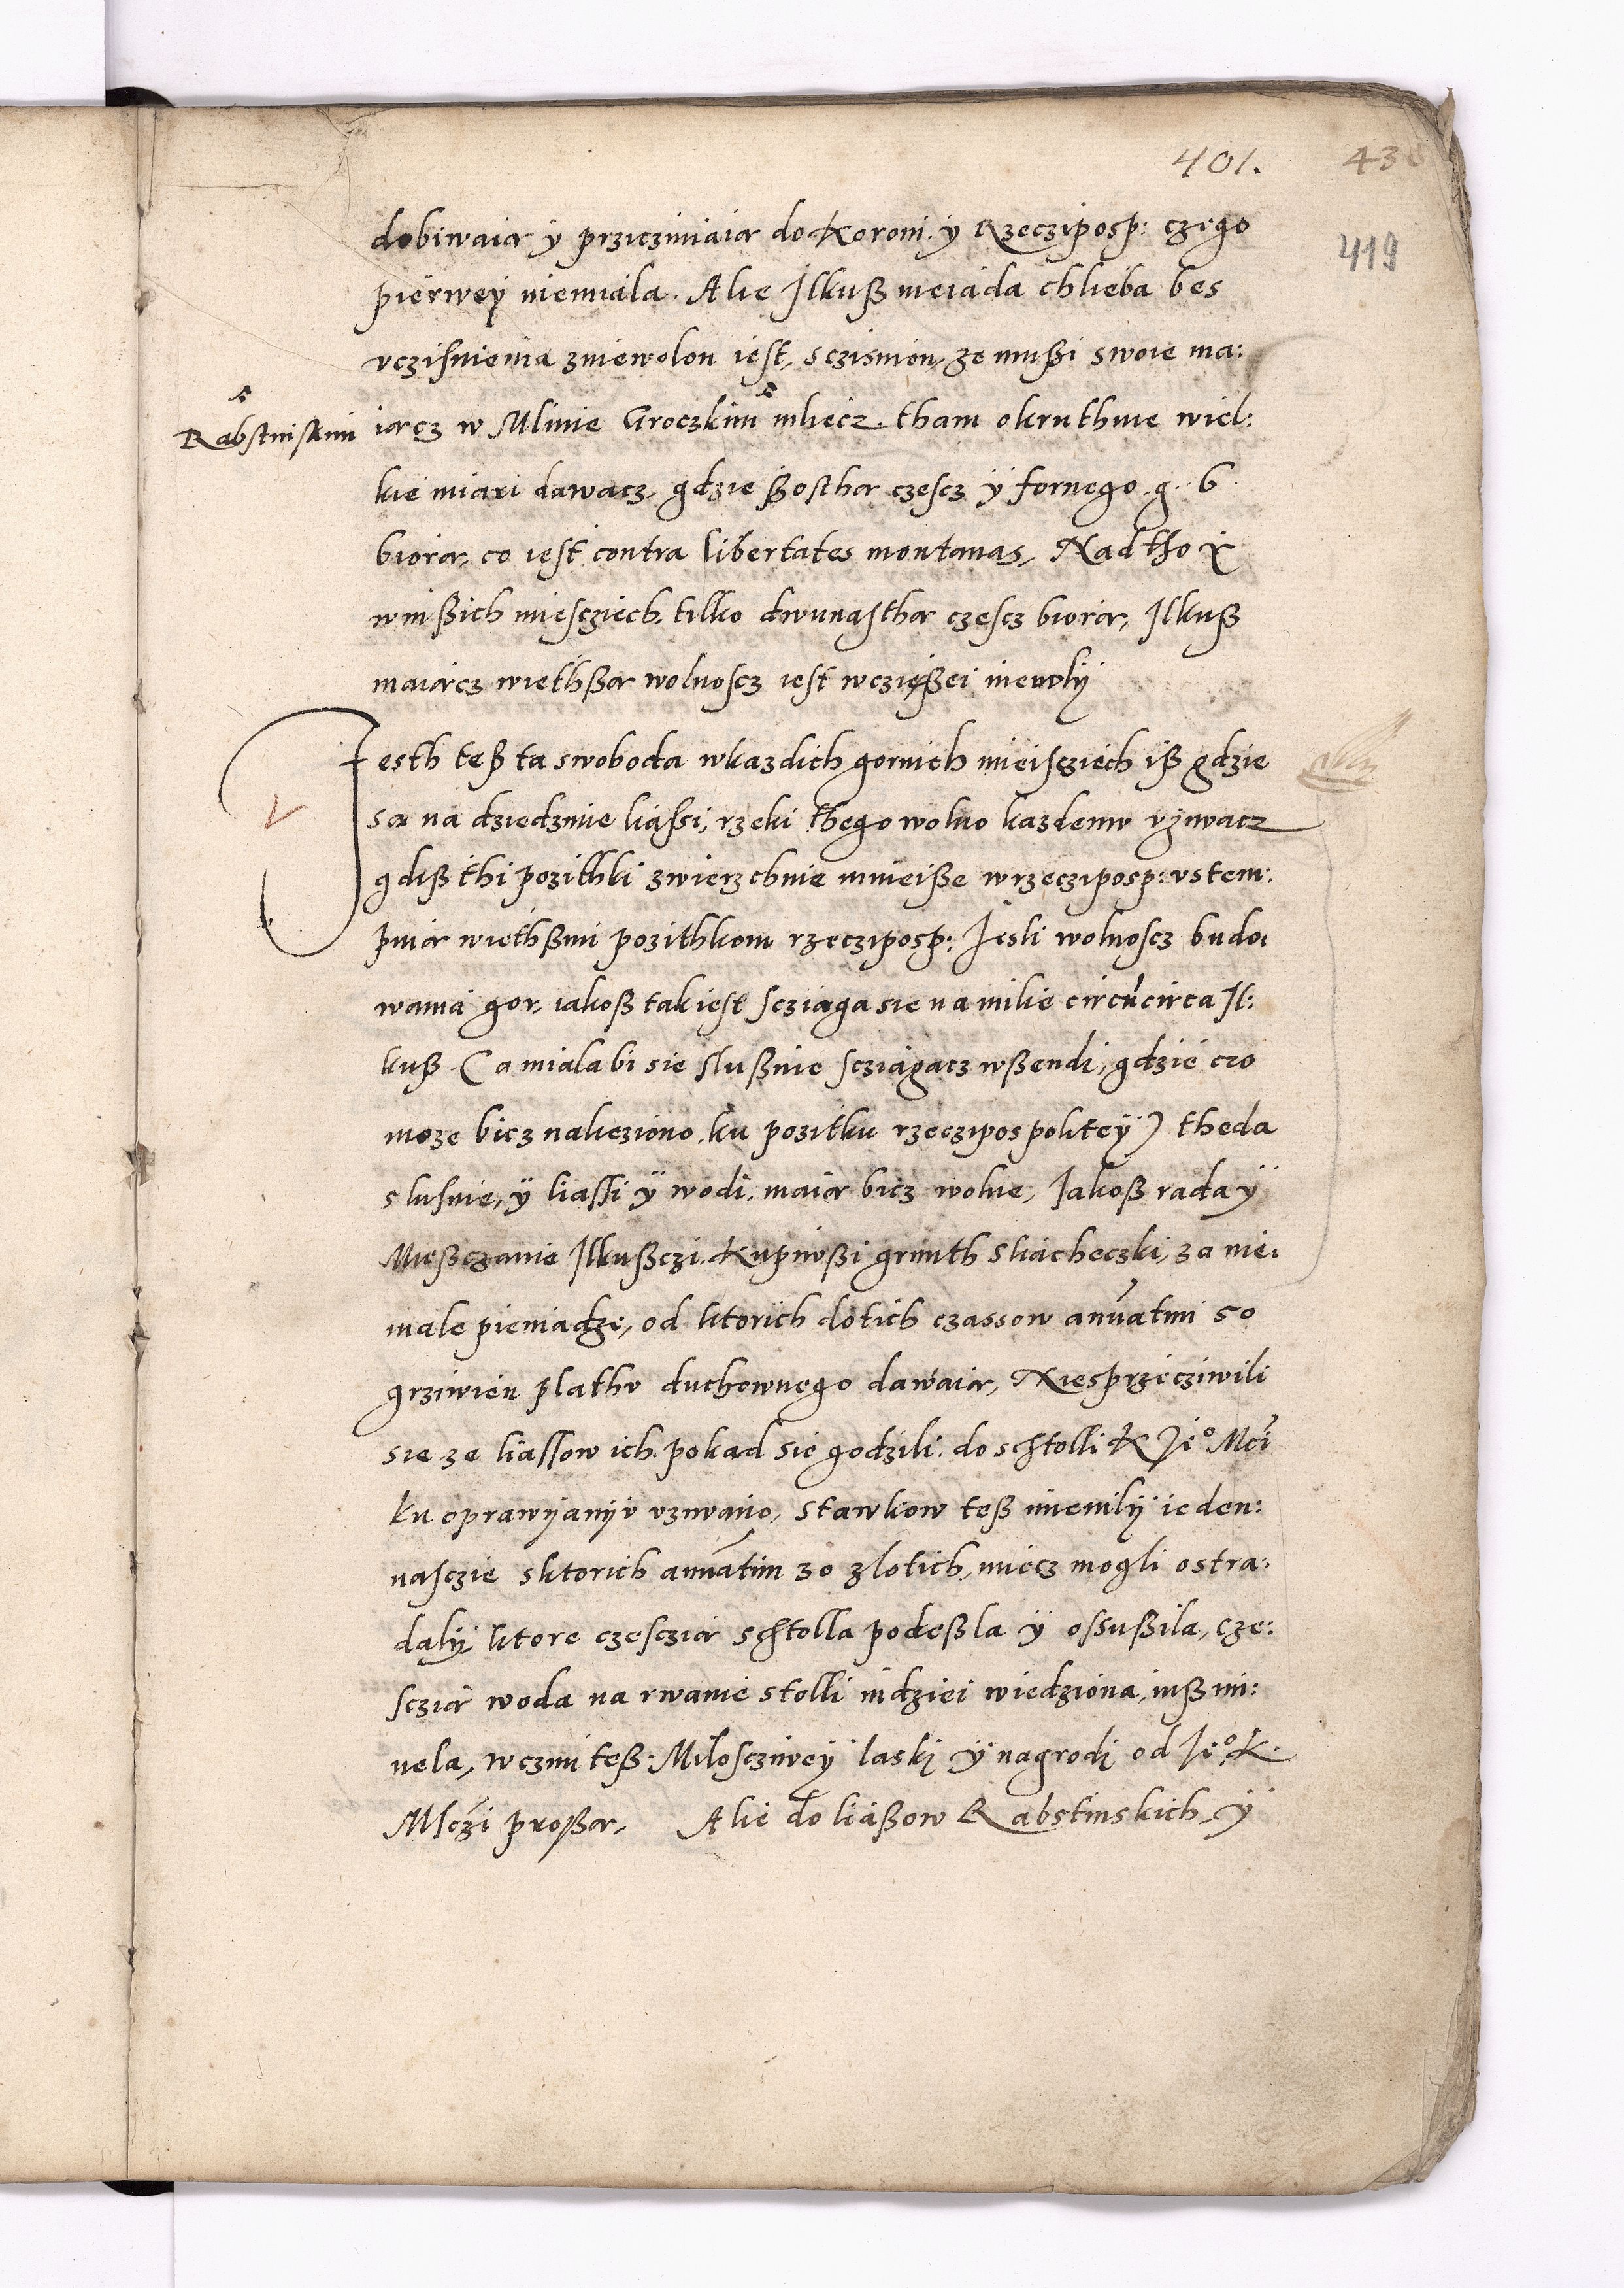 401. 438
419
dobiwaią y prziczиniaią do Koroni. y Rzecziposp: czego
pierwey niemiala. Alie Ilkuß nieiada chlieba bes
vcziśnienia zniewolon iest, sczismion, ze mußi swoie ma:
Rabstinskim
iącz w Mlinie Groczkim mliecz. tham okruthnie wiel:
kie miari dawacz, gdzie ßosthą czescz ÿ fornego .g. 6.
biorą, co iest contra libertates montanas, Nad tho x
wnißich miesciech. tilko dwunasthą czescz biorą, Ilkuß
maiącz wiethßą wolnoscz iest wczięßei niewoly
Jesth teß ta swoboda wkazdich gornich mieisciech iß gdzie
są na dziedzinie liassi, rzeki thego wolno kazdemu vziwacz
gdiß thi pozithki zwierzchnie mnieiße wrzecziposp: vstem:
puią wiethßim pozithkom rzeczposp: Iesli wolnoscz budo:
wania gor, iakoß tak iest scziąga sie na milie circũcirca Il:
kuß. (a miala bi sie slußnie scziągacz wßendi, gdzie czo
moze bicz nalieziono, ku pozitku rzeczipospolitey) theda
slusnie, ÿ liassi ÿ wodi, maią bicz wolne, Iakoß rada ÿ
Mießczanie Ilkußczi. Kupiwßi grunth sliacheczki, za nie:
male pieniadze, od ktorich dotich czassow annũatim 50
grziwien plathv duchownego dawaią, Niesprzecziwili
sie ze liassow ich. pokad sie godzili. do schtolli K Jeº Mci
ku oprawyanyv vziwano, stawkow teß mienily ieden:
nasczie sktorich annuatim 30 zlotich, miecz mogli ostra:
daly, ktore czesczią schtolla podeßla ÿ ossußila, cze:
sczią woda na rwanie stolli indziei wiedziona, iuß mi:
nela, wczim teß. Milosczиwey laski ÿ nagrodi od Jeº K.
Msczi proßą, Alie do liaßow Rabstinskich ÿ